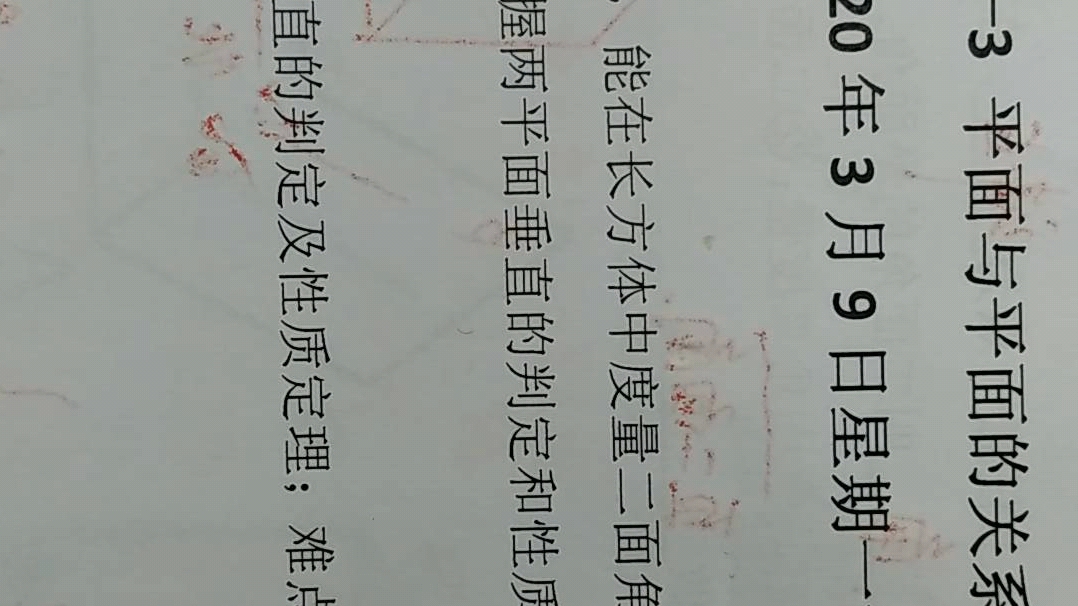 -3 平面与平面的关系
20 年 3 月 9 日星期一
能在长方体中度量二面角
握两平面垂直的判定和性质
直的判定及性质定理；难点